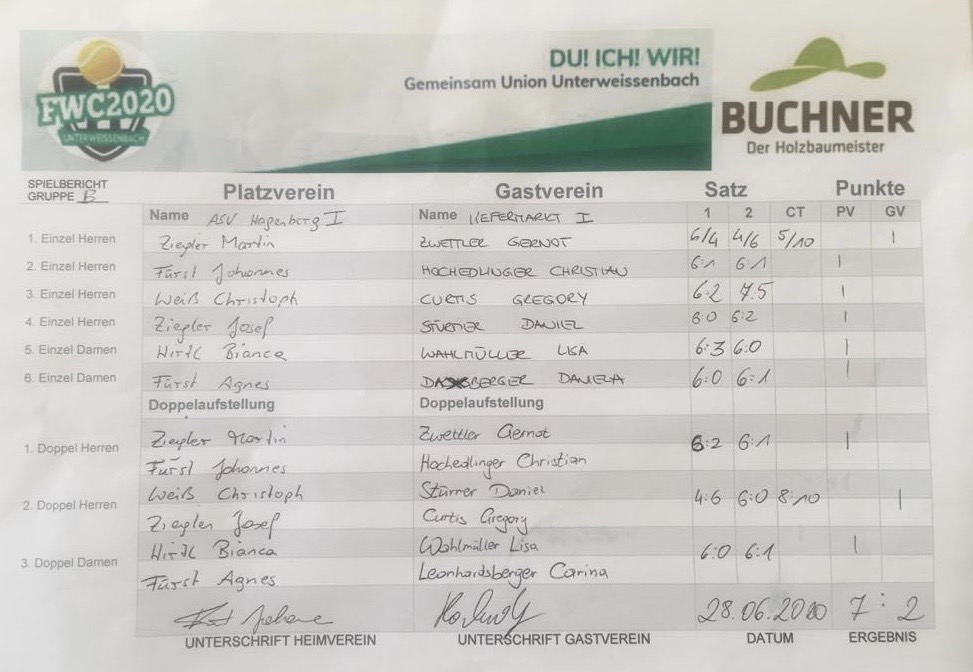 FWC2020
UNTERWEISSENBACH
DU! ICH! WIR!
Gemeinsam Union Unterweissenbach
BUCHNER
Der Holzbaumeister
SPIELBERICHT
GRUPPE B
Platzverein Gastverein Satz Punkte
Name ASV Hagenberg I Name LIEFERMARKT I 1 2 CT PV GV
1. Einzel Herren Ziegler Martin ZWETTLER GERNOT 6/4 4/6 5/10 |
2. Einzel Herren Fürst Johannes HOCHEDLINGER CHRISTIAN 6:1 6:1 |
3. Einzel Herren Weiß Christoph CURTIS GREGORY 6:2 7:5 |
4. Einzel Herren Ziegler Josef DANIEL 6:0 6:2 |
5. Einzel Damen Bianca WAHLMÜLLER LISA 6:3 6:0 |
6. Einzel Damen Fürst Agnes DANIELA 6:0 6:1 |
Doppelaufstellung Doppelaufstellung
1. Doppel Herren Ziegler Martin Zwettler Gernot 6:2 6:1 |
Fürst Johannes Hochedlinger Christian
2. Doppel Herren Weiß Christoph Stürner Daniel 4:6 6:0 8:10 |
Ziegler Josef Curtis Gregory
3. Doppel Damen Bianca Wahlmüller Lisa 6:0 6:1 |
Fürst Agnes Leonhardsberger Carina
28.06.2020 7:2
UNTERSCHRIFT HEIMVEREIN UNTERSCHRIFT GASTVEREIN DATUM ERGEBNIS